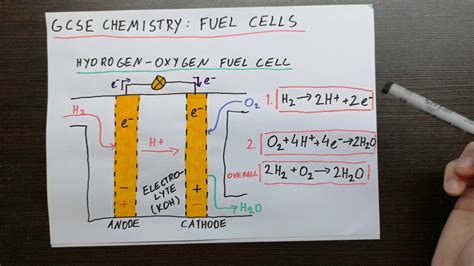 GCSE CHEMISTRY: FUEL CELLS
HYDROGEN-OXYGEN FUEL CELL
e⁻ e⁻
H₂
e⁻ e⁻
O₂
H⁺
ELECTRO-
LYTE
(KOH)
− +
+
H₂O
ANODE CATHODE
1. H₂ → 2H⁺ + 2e⁻
2. O₂ + 4H⁺ + 4e⁻ → 2H₂O
OVERALL 2H₂ + O₂ → 2H₂O